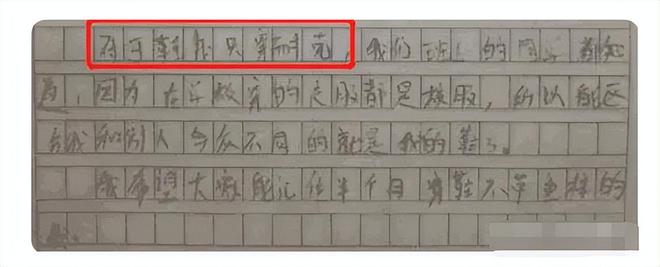 对于鞋我只穿耐克,我们班上的同学都知
道,因为在学校穿的衣服都是校服,所以能区
分我和别人今众不同的就是我的鞋子。
我希望大家能记住半个月穿鞋不带重样的